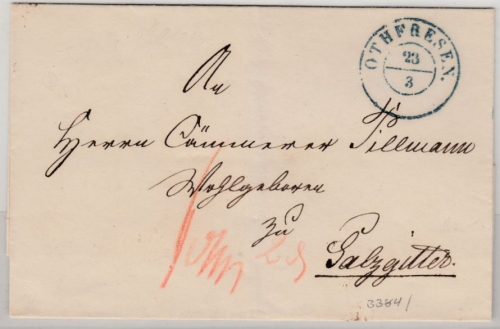 OTHFRESEN.
23
3
An
Herrn Cämmerer Tillmann
Wohlgeboren
zu
Salzgitter.
3384/